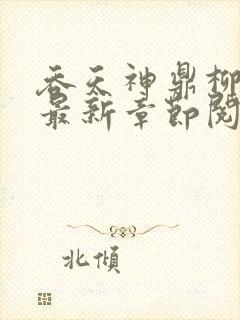 吞天神鼎柳
最新章節閱
北傾